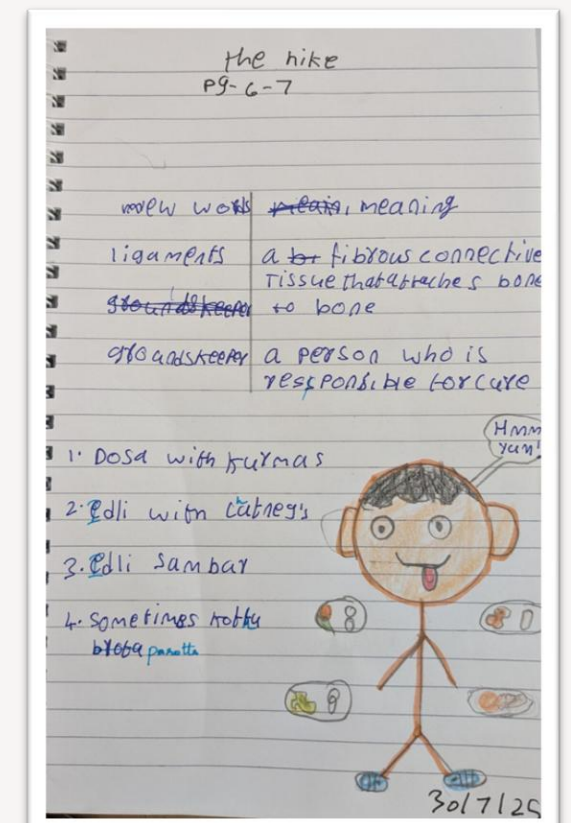 the hike
Pg-6-7
new words meaning
ligaments a fibrous connective
tissue that attaches bone
groundskeeper to bone
groandskeeper a person who is
responsible for care
1. Dosa with kurmas
2. Edli with catneg's
3. Edli sambar
4. sometimes kothu
brota parotta
Hmm
Yum!
30/7/25